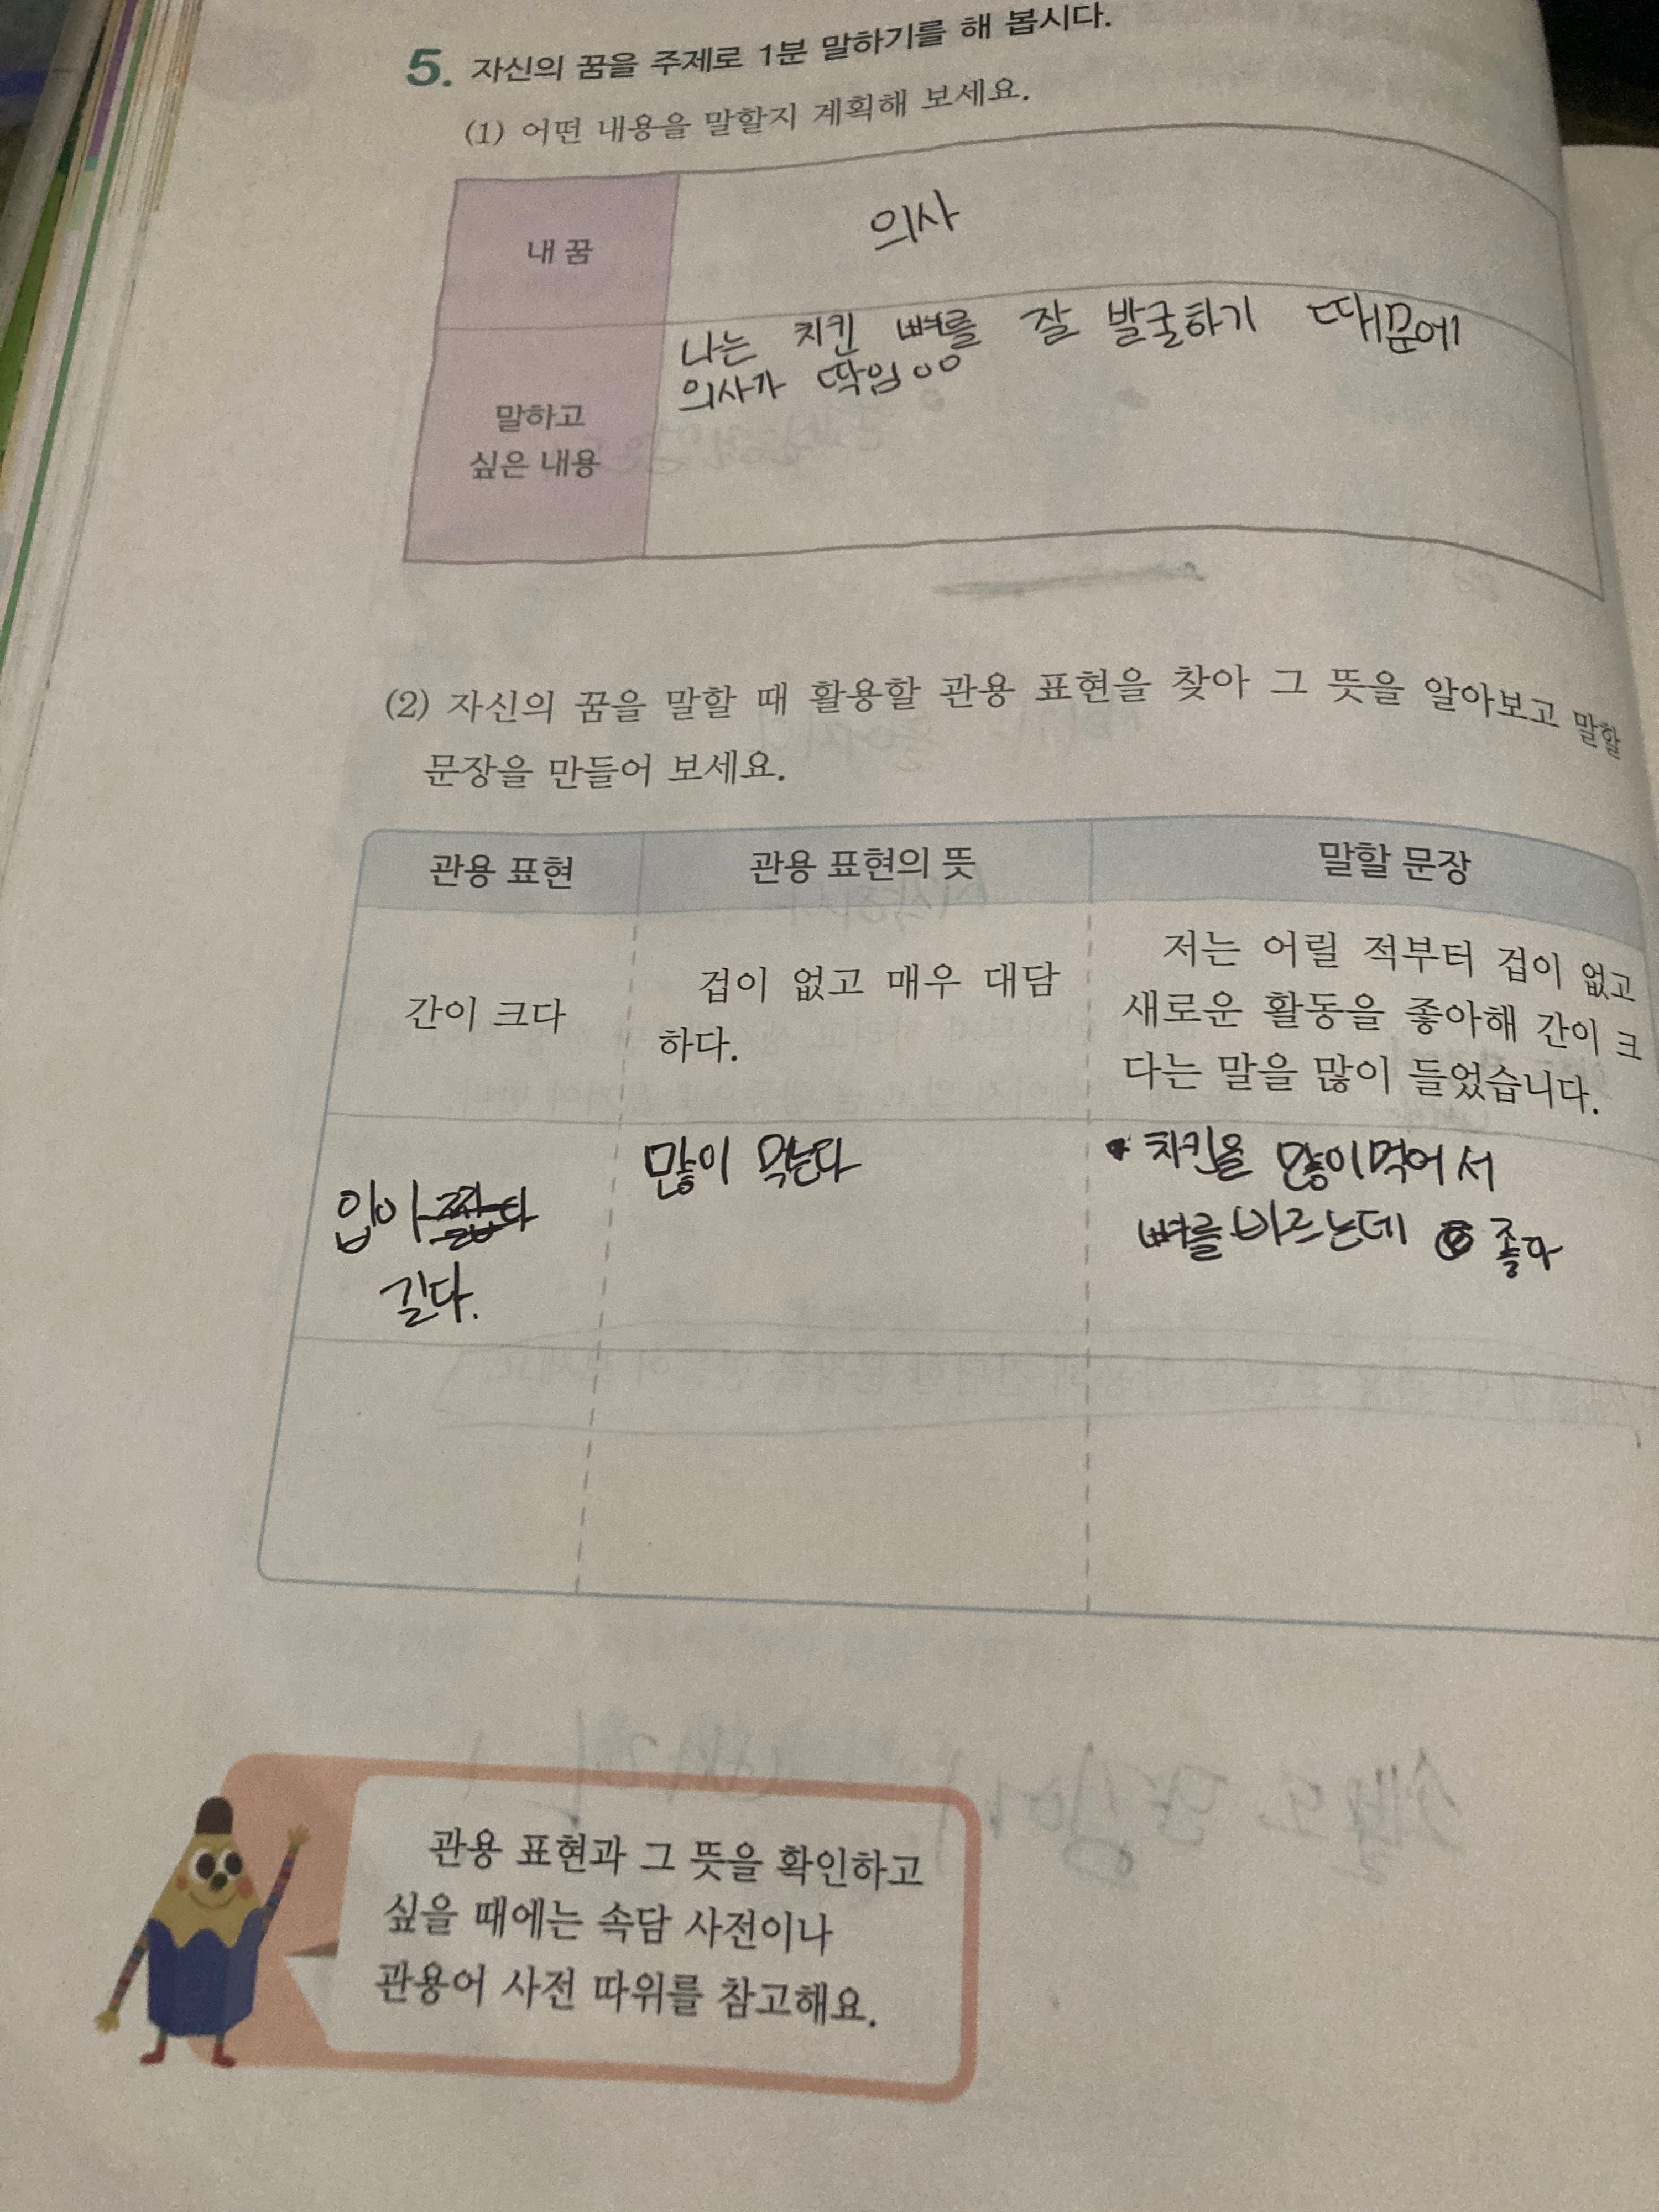 5. 자신의 꿈을 주제로 1분 말하기를 해 봅시다.
(1) 어떤 내용을 말할지 계획해 보세요.
내 꿈
의사
말하고
싶은 내용
나는 치킨 뼈를 잘 발굴하기 때문에
의사가 딱임ㅇㅇ
(2) 자신의 꿈을 말할 때 활용할 관용 표현을 찾아 그 뜻을 알아보고 말할
문장을 만들어 보세요.
관용 표현
관용 표현의 뜻
말할 문장
간이 크다
겁이 없고 매우 대담
하다.
저는 어릴 적부터 겁이 없고
새로운 활동을 좋아해 간이 크
다는 말을 많이 들었습니다.
입이 짧다
길다.
많이 먹는다
치킨을 많이먹어서
뼈를 바르는데 좋다
관용 표현과 그 뜻을 확인하고
싶을 때에는 속담 사전이나
관용어 사전 따위를 참고해요.